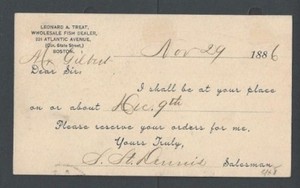 LEONARD A. TREAT,
WHOLESALE FISH DEALER,
321 ATLANTIC AVENUE,
(Cor. State Street,)
BOSTON.
Nov 29 1886
Mr. Gilbert
Dear Sir:
I shall be at your place
on or about Dec. 9th
Please reserve your orders for me.
Yours Truly,
S. St. Dennis Salesman.